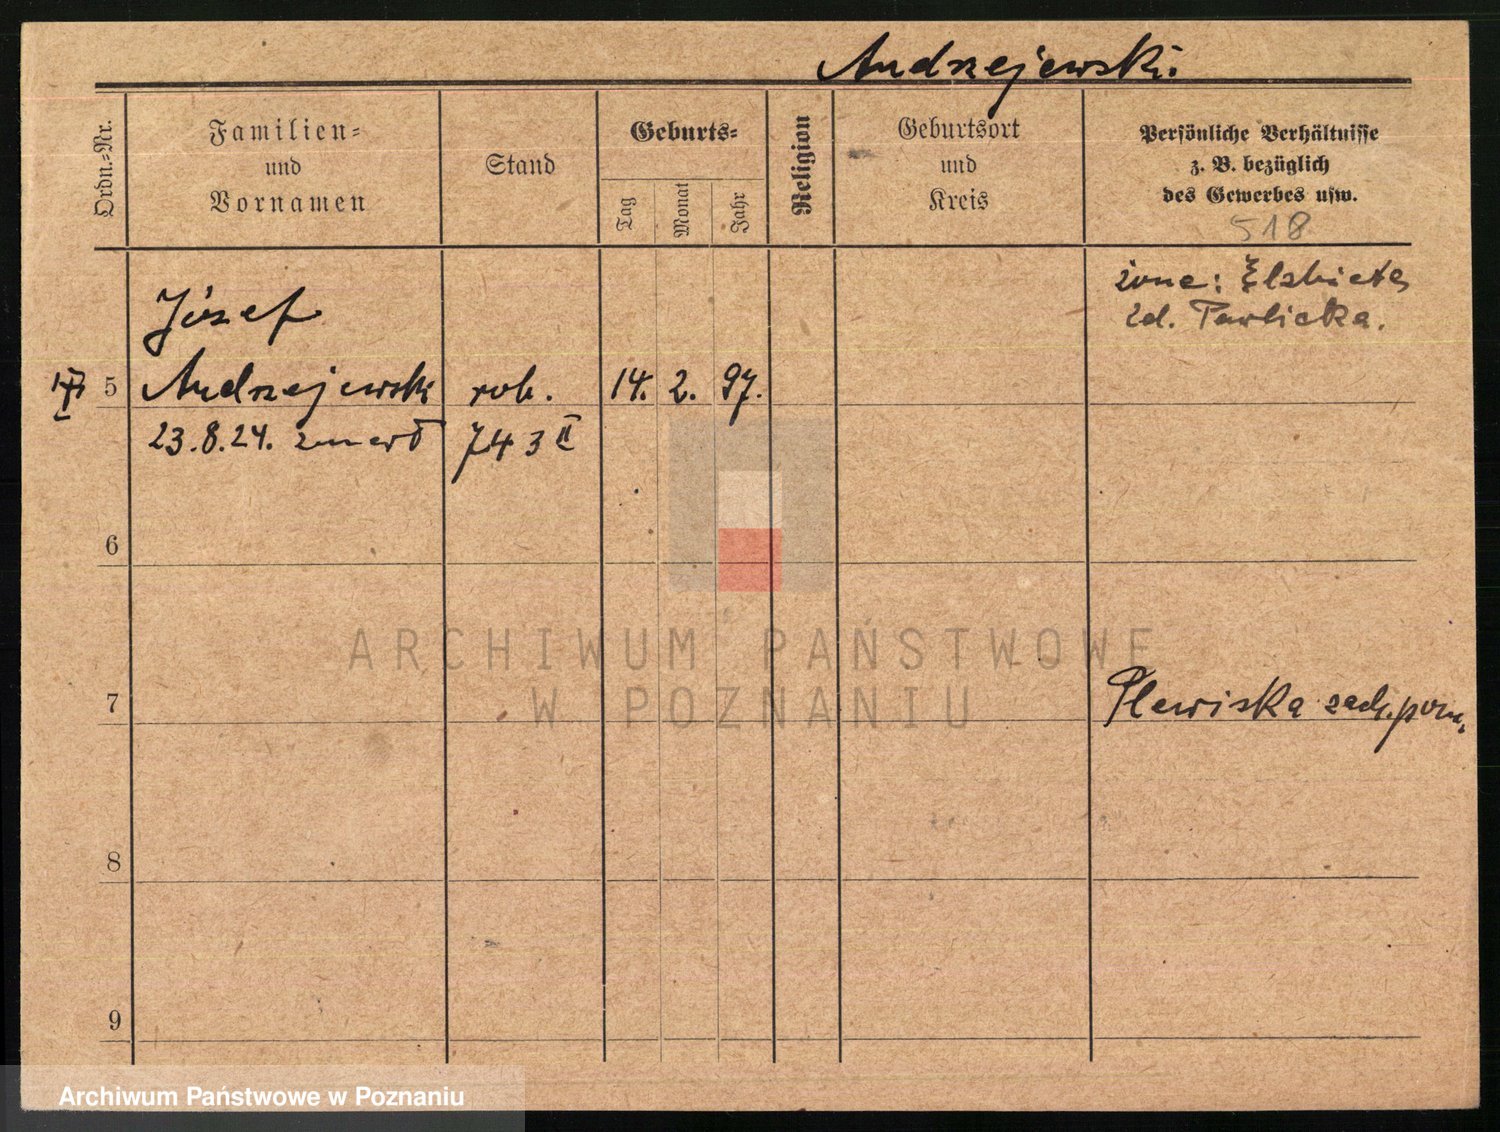 Andrzejewski.
Ordn.=Nr.
Familien=
und
Vornamen
Stand
Geburts=
Tag
Monat
Jahr
Religion
Geburtsort
und
Kreis
Persönliche Verhältnisse
z. B. bezüglich
des Gewerbes usw.
518
żona: Elżbieta
zd. Pawlicka.
Józef
5 Andrzejewski rob. 14. 2. 97.
23.8.24. zmarł 743 II
6
7 Plewiska zach. pozn.
8
9
ARCHIWUM PAŃSTWOWE
W POZNANIU
Archiwum Państwowe w Poznaniu